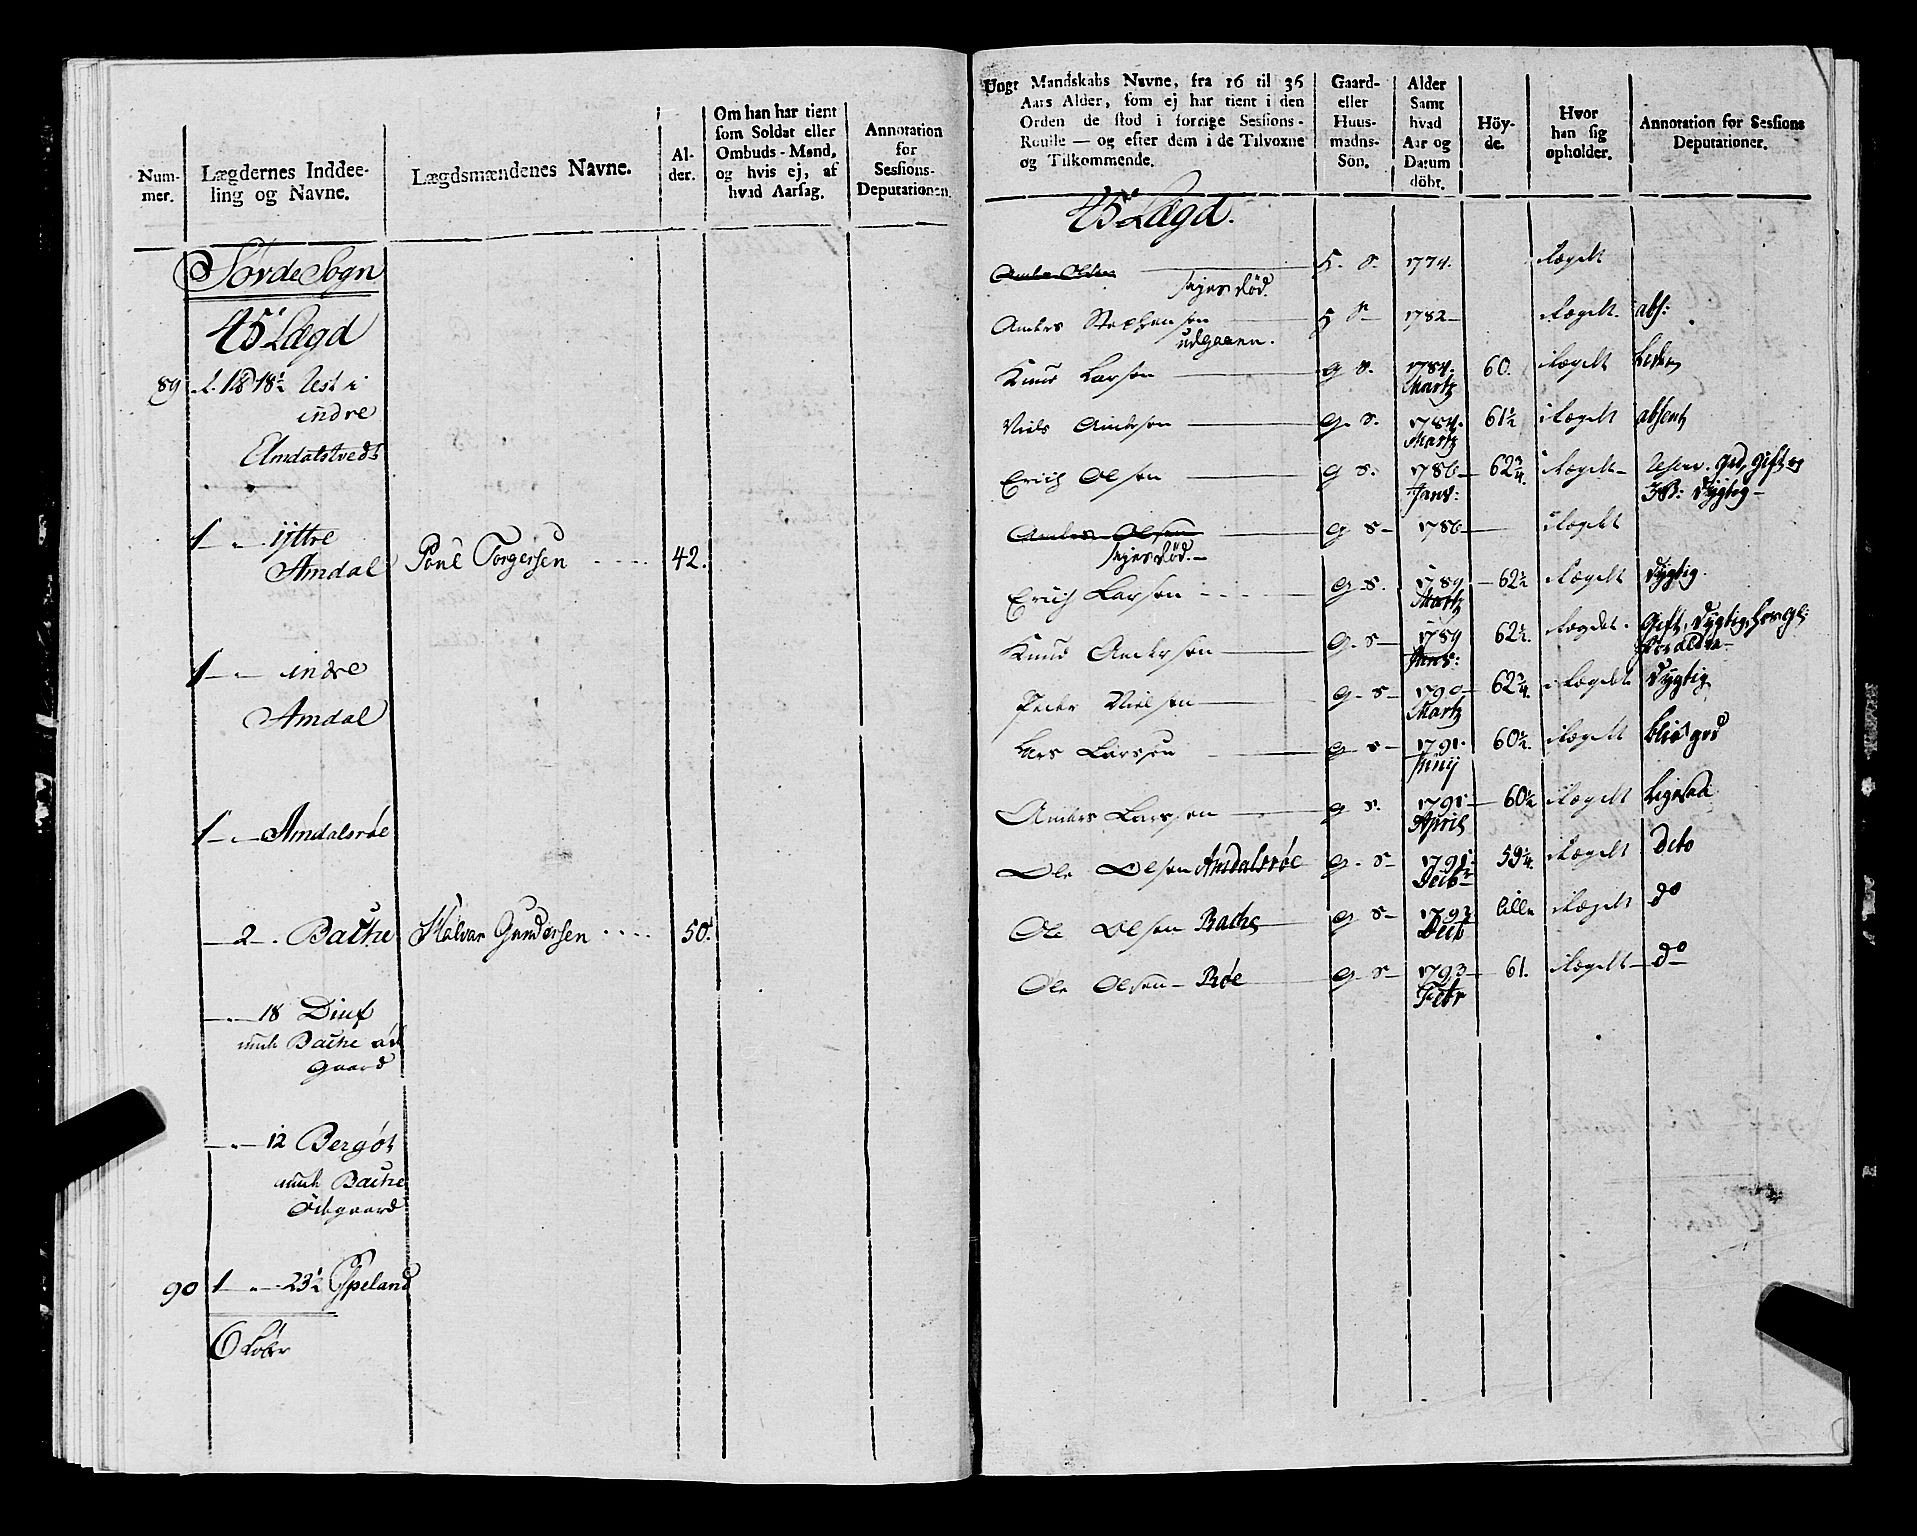 Num-
mer.
Lægdernes Inddee-
ling og Navne.
Lægdsmændenes Navne.
Al-
der.
Om han har tient
som Soldat eller
Ombuds-Mand,
og hvis ej, af
hvad Aarsag.
Annotation
for
Sessions-
Deputationen.
Sørde Sogn
45 Lægd
89 1. 18 18½ Vest i
indre
Amdalstveds
1 " ÿttre
Amdal Poul Torgersen 42.
1 " indre
Amdal
1 " Amdalsrøe
2 Bache Halvar Gundersen 50.
" 18
Bache
gaard
" 12 Bergøt
Bache
Ödegaard
90 1 " 23½ Espeland
6
Ungt Mandskabs Navne, fra 16 til 36
Aars Alder, som ej har tient i den
Orden de stod i forrige Sessions-
Roulle — og efter dem i de Tilvoxne
og Tilkommende.
Gaard-
eller
Huus-
mands-
Søn.
Alder
Samt
hvad
Aar og
Datum
döbt.
Höy-
de.
Hvor
han sig
opholder.
Annotation for Sessions
Deputationer.
45 Lægd.
H. S. 1774. i Lægdet
siges død.
Anders Stephensen H S 1782 i Lægdet abs:
udgaaen.
Knud Larsen G S. 1784. Martz 60. i Lægdet
Niels Andersen G. S. 1784. Martz 61½ i Lægdet absent
Erich Olsen G S. 1786 Janv: 62¾. i Lægdet gift og
Dygtig
Anders Olsen G S 1786 i Lægdet
siges død.
Erich Larsen G. S. 1789 Martz 62½ i Lægdet Dygtig
Knud Andersen G. S 1789 Janv: 62½. i Lægdet. Gift, Dygtig,
Peder Nielsen G. S 1790 Martz 62¾. i Lægdet Dygtig
Lars Larsen G S 1791. Junij 60½. i Lægdet
Anders Larsen G S. 1791 April 60½ i Lægdet ligesaa
Ole Olsen Amdalsrøe G. S 1791 Decbr 59¼. i Lægdet Dito
Ole Olsen Bache G S 1793 Decb lille i Lægdet do
Ole Olsen Røe G. S 1793 Febr 61. i Lægdet do